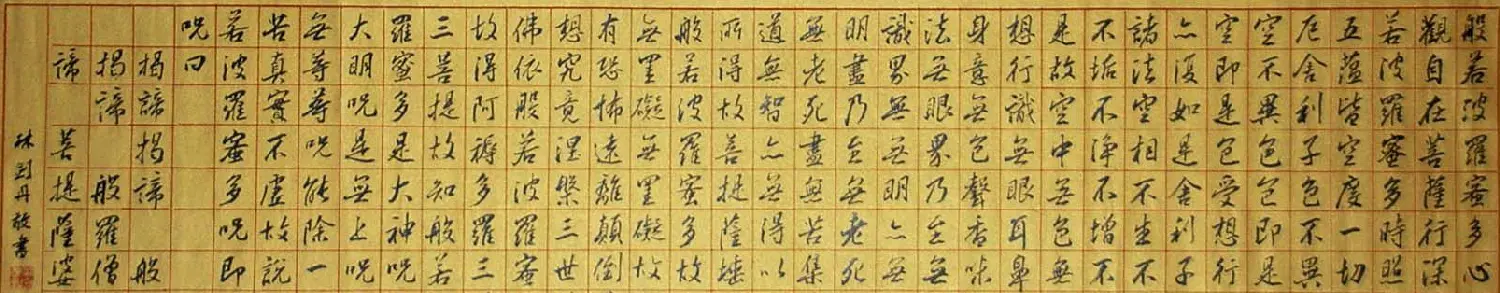 般若波羅蜜多心
觀自在菩薩行深
若波羅蜜多時照
五蘊皆空度一切
厄舍利子色不異
空不異色色即是
空即是色受想行
亦復如是舍利子
諸法空相不生不
不垢不淨不增不
是故空中无色無
想行識無眼耳鼻
身意無色聲香味
法无眼界乃至無
識界無無明亦無
明盡乃至無老死
無老死盡無苦集
道無智亦無得以
所得故菩提薩埵
般若波羅蜜多故
無罣礙無罣礙故
有恐怖遠離顛倒
想究竟涅槃三世
佛依般若波羅蜜
故得阿耨多羅三
三菩提故知般若
羅蜜多是大神呪
大明呪是無上呪
無等等呪能除一
苦真實不虛故說
若波羅蜜多呪即
呪曰
揭諦 揭諦 般
揭諦 般羅僧
諦 菩提薩婆
林剑丹敬書